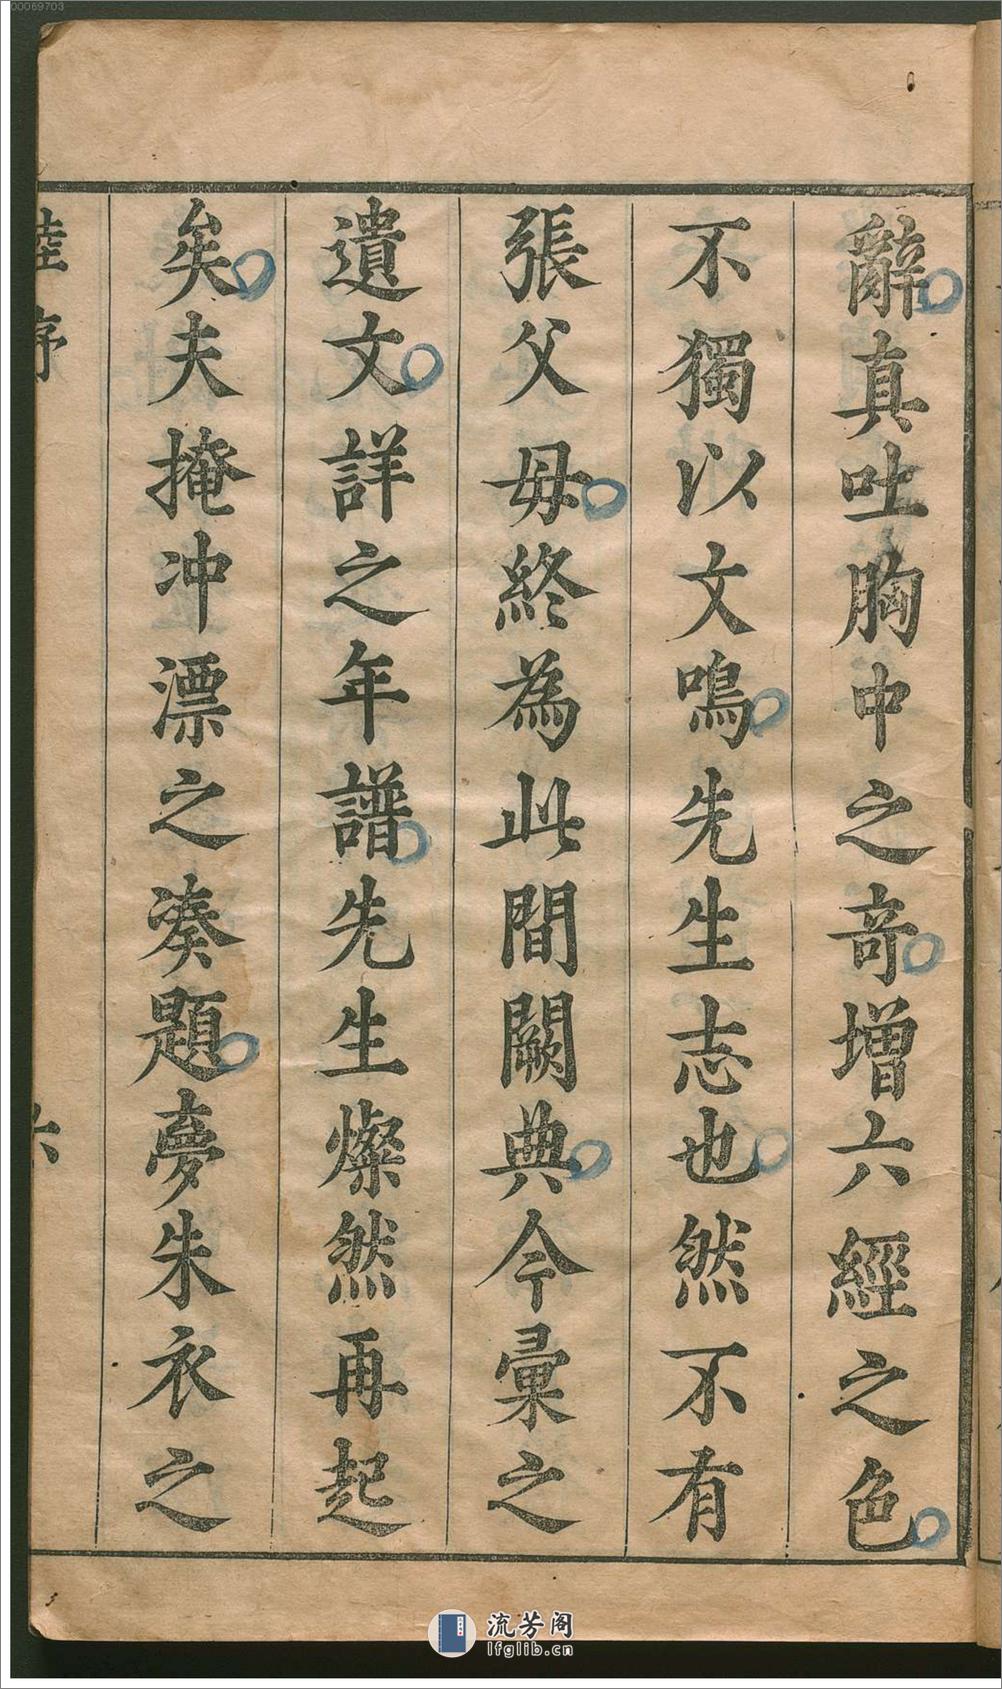 00069703
辭真吐胸中之奇增六經之色
不獨以文鳴先生志也然不有
張父毋終為此間闕典今彙之
遺文詳之年譜先生燦然再起
矣夫掩冲漂之湊題夢朱衣之
陸序
六
流芳阁
lfglib.cn